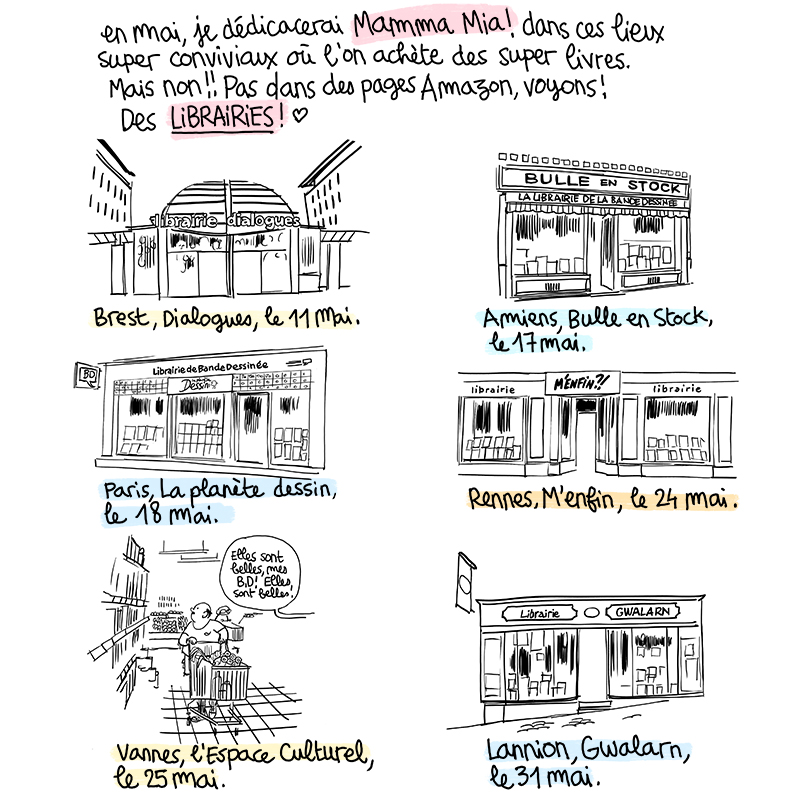 en mai, je dédicacerai Mamma Mia! dans ces lieux
super conviviaux où l'on achète des super livres.
Mais non!! Pas dans des pages Amazon, voyons!
Des LiBRAiRiES! ♡
librairie dialogues
Brest, Dialogues, le 11 mai.
BULLE EN STOCK
LA LIBRAIRIE DE LA BANDE DESSINÉE
Amiens, Bulle en Stock,
le 17 mai.
BD
Librairie de Bande Dessinée
Dessin
Paris, La planète dessin,
le 18 mai.
librairie
M'ENFIN?!
librairie
Rennes, M'enfin, le 24 mai.
Elles sont
belles, mes
B.D! Elles
sont belles!
Vannes, l'Espace Culturel,
le 25 mai.
Librairie
GWALARN
Lannion, Gwalarn,
le 31 mai.